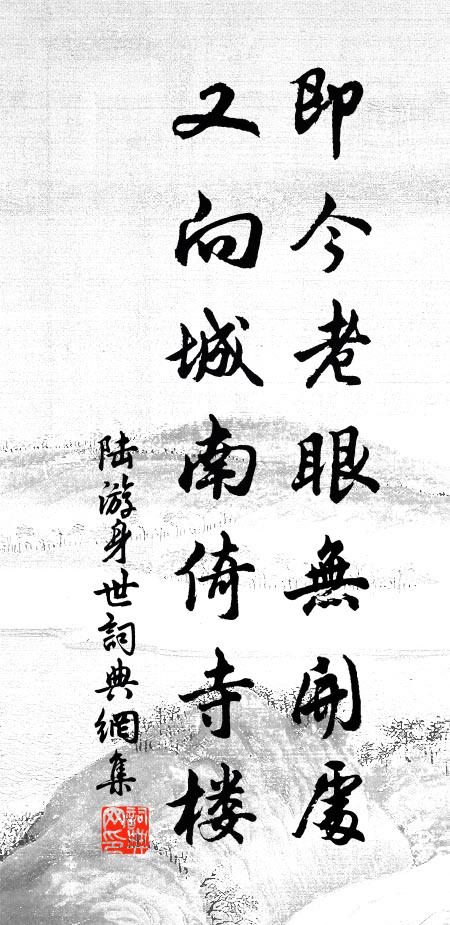 即今老眼無開處
又向城南倚寺楼
陆游身世詞典網集